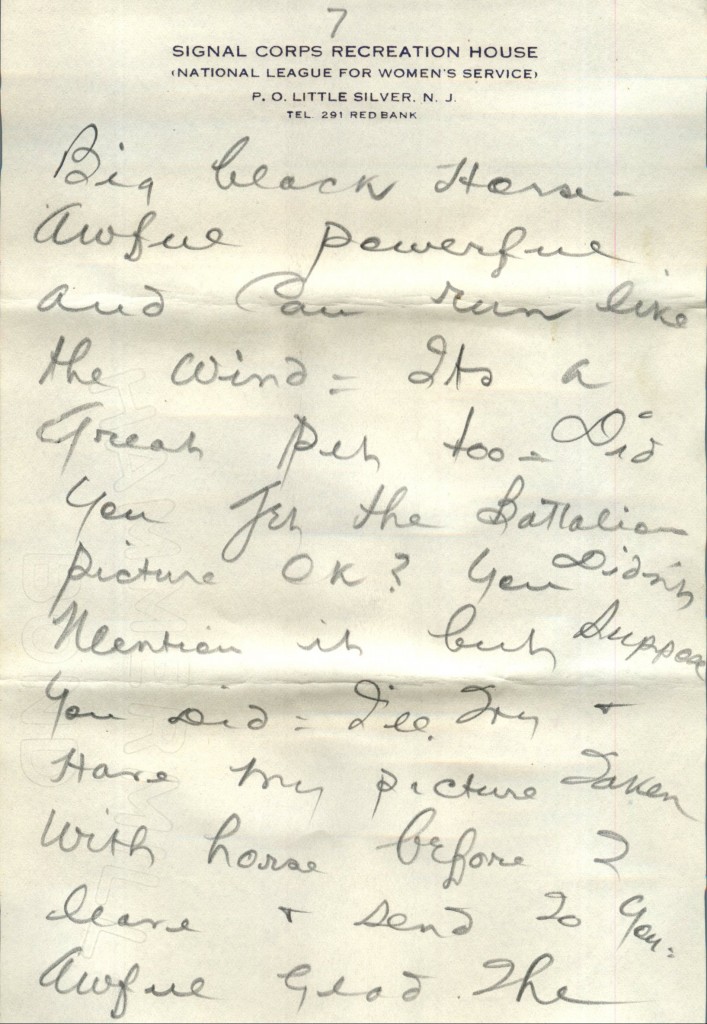 7
SIGNAL CORPS RECREATION HOUSE
(NATIONAL LEAGUE FOR WOMEN'S SERVICE)
P. O. LITTLE SILVER, N. J.
TEL. 291 RED BANK
Big black Horse -
Awful powerful
and can run like
the wind = Its a
Great pet too = Did
you get the Battalion
picture OK? You Didn't
Mention it but suppose
you did = I'll Try +
Have my picture Taken
With horse before I
leave + send To you.
Awful Glad The
HAMMERMILL
BOND